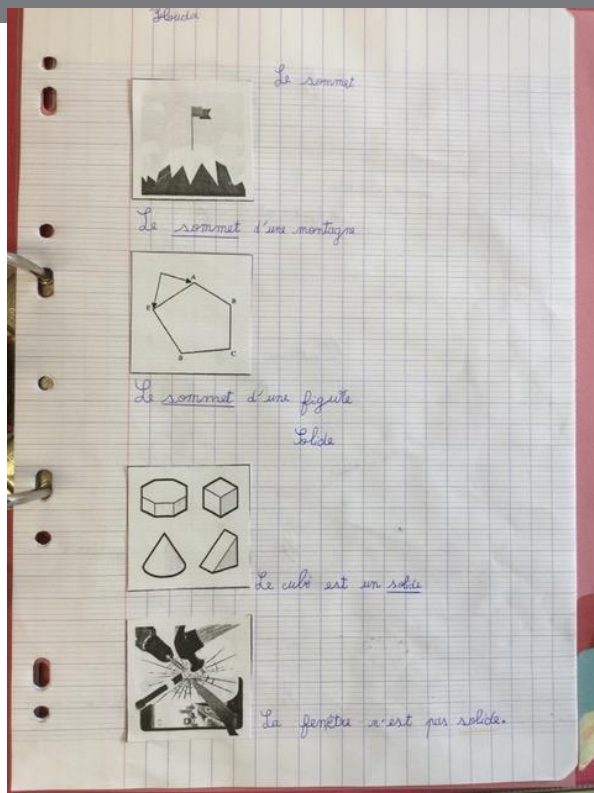 Le sommet
Le sommet d'une montagne
A
E
B
D
C
Le sommet d'une figure
Solide
Le cube est un solide
La fenêtre n'est pas solide.